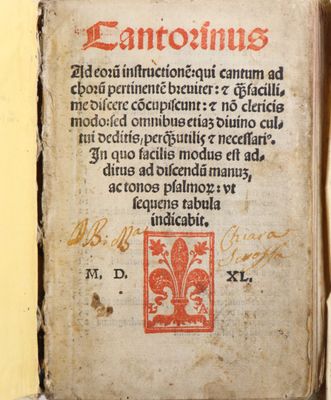 Cantorinus
Ad eorū instructionē: qui cantum ad
chorū pertinentē breviter: ⁊ q̄ꝫ facilli-
me discere cōcupiscunt: ⁊ nō clericis
modo: sed omnibus etiaꝫ divino cul-
tui deditis, perq̄ꝫ utilis ⁊ necessariꝰ.
In quo facilis modus est ad-
ditus ad discendū manuꝫ,
ac tonos psalmoꝝ: vt
sequens tabula
indicabit.
Chiara
M. D. XL.
L A